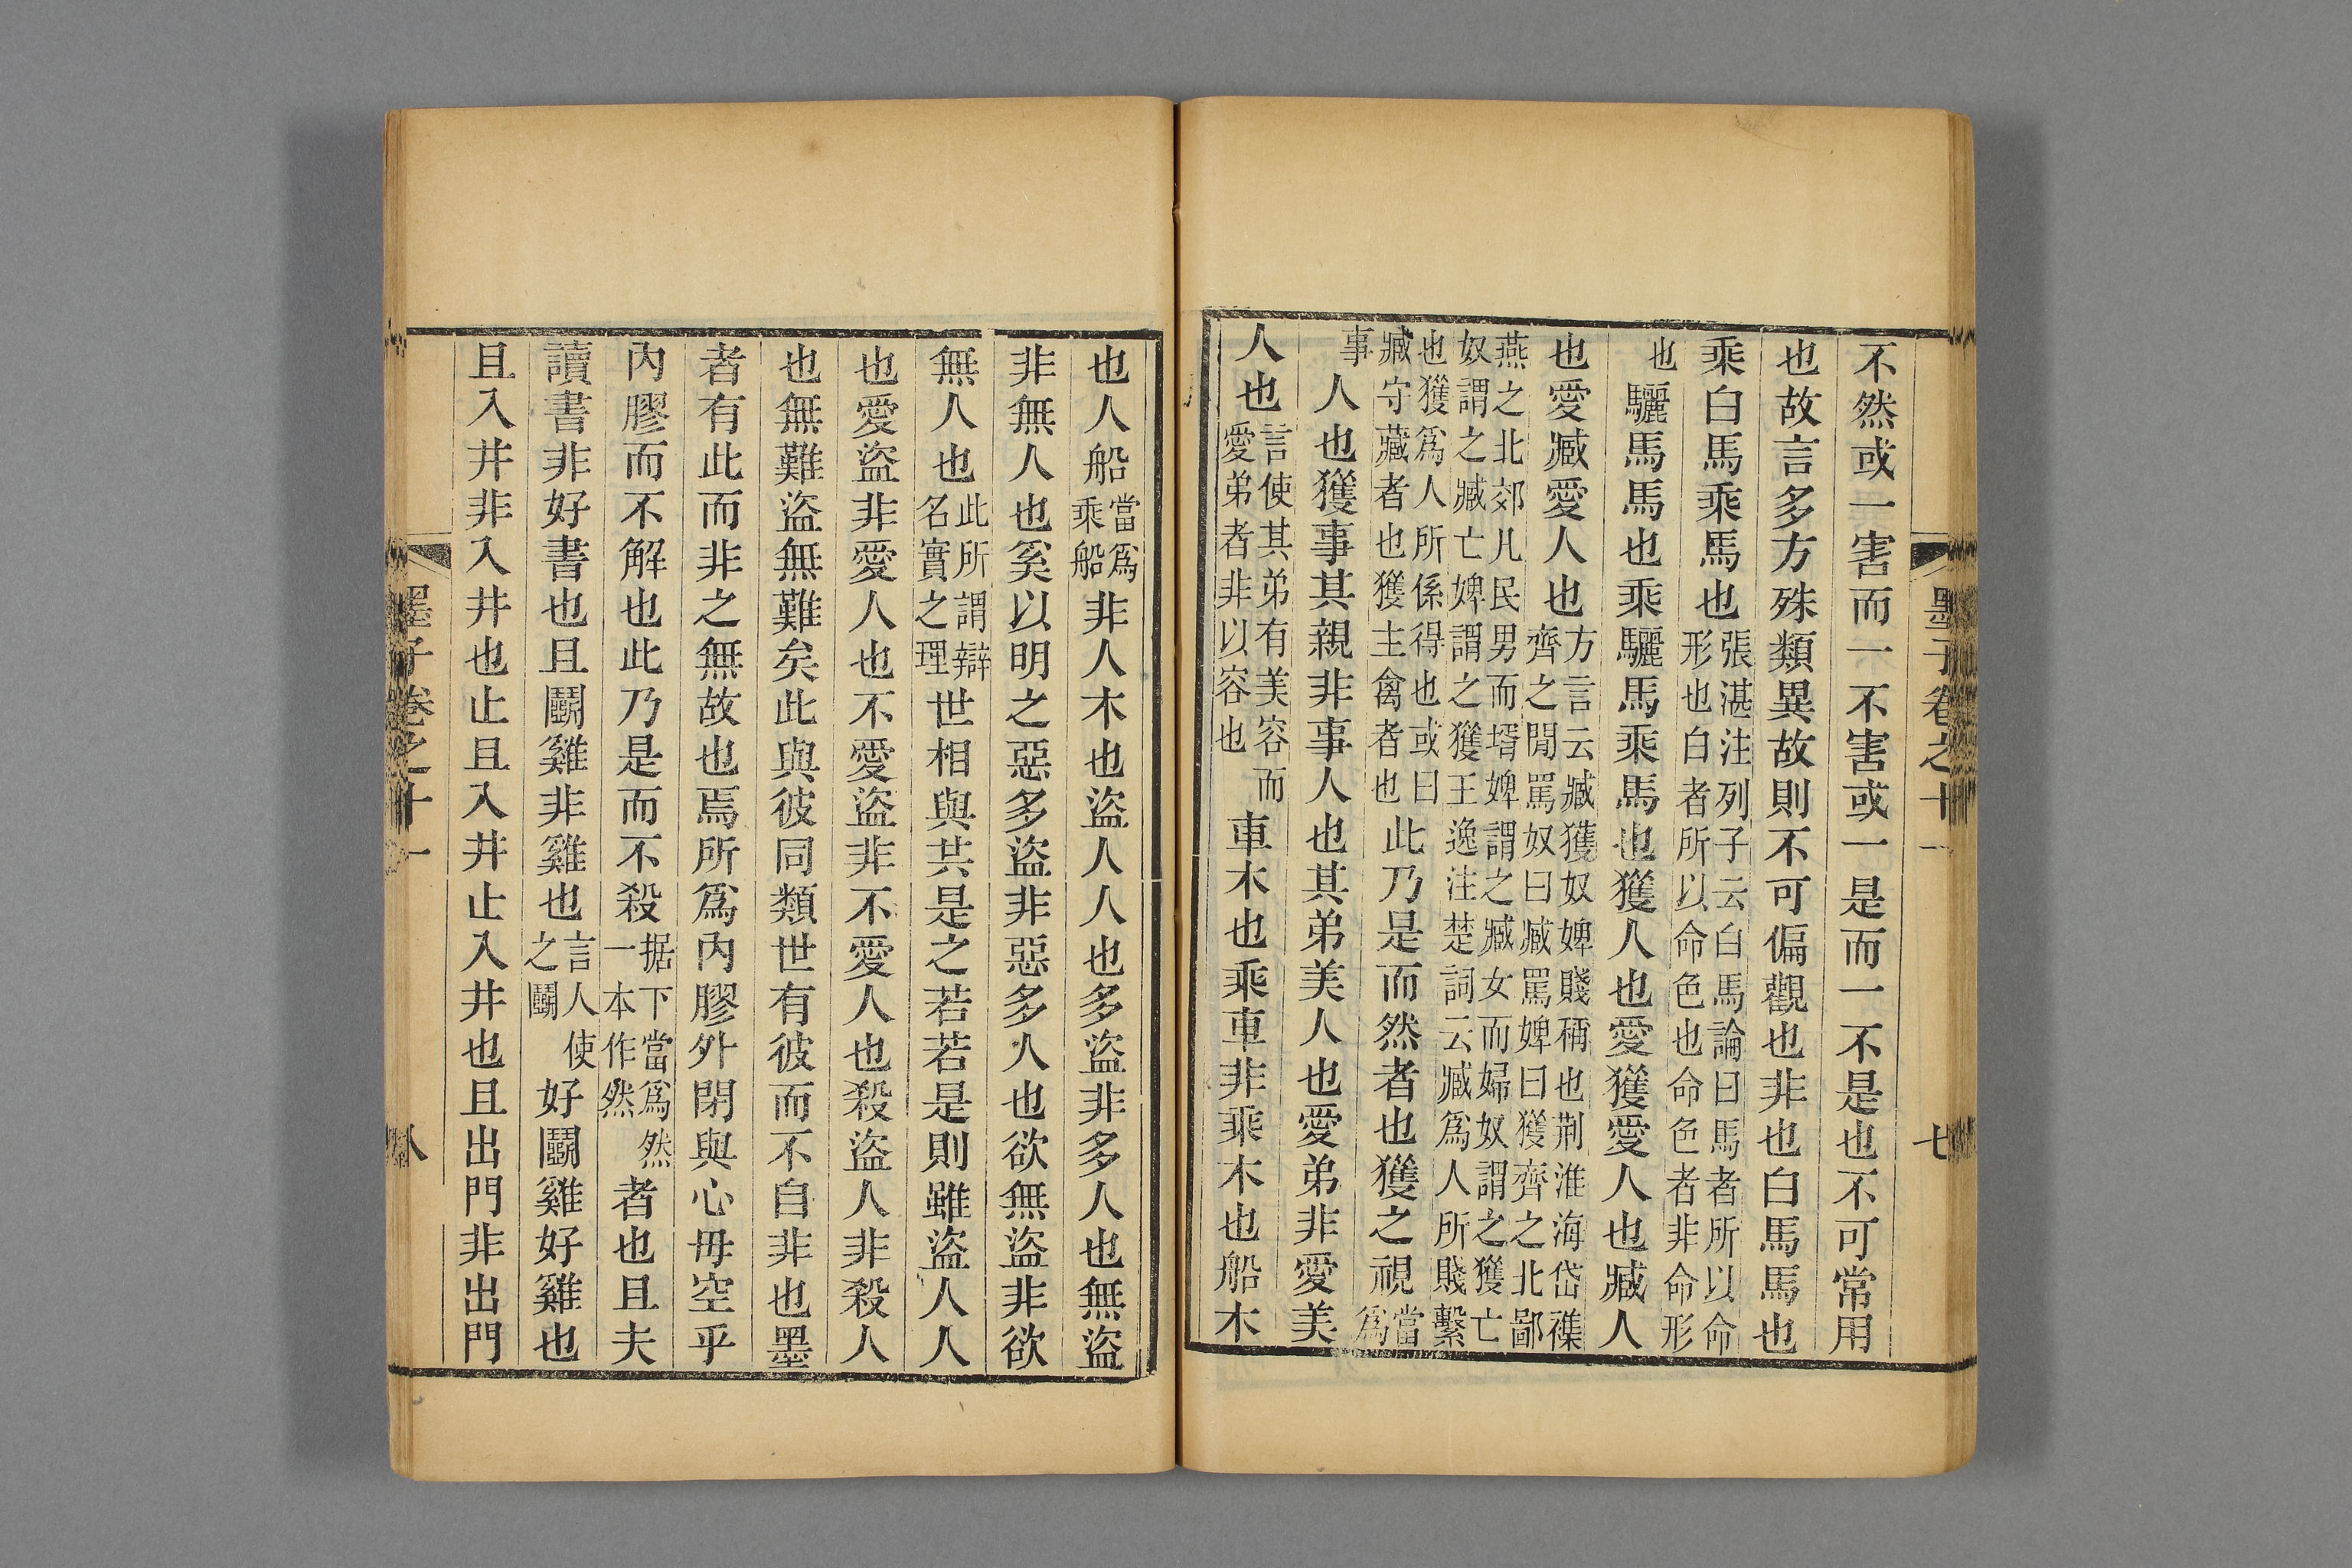 墨子卷之十一 七
不然或一害而一不害或一是而一不是也不可常用
也故言多方殊類異故則不可偏觀也非也白馬馬也
乘白馬乘馬也張湛注列子云白馬論曰馬者所以命形也白者所以命色也命色者非命形
也驪馬馬也乘驪馬乘馬也獲人也愛獲愛人也臧人
也愛臧愛人也方言云臧獲奴婢賤稱也荆淮海岱襍齊之閒罵奴曰臧罵婢曰獲齊之北鄙
燕之北郊凡民男而壻婢謂之臧女而婦奴謂之獲亡奴謂之臧亡婢謂之獲王逸注楚詞云臧爲人所賤繫
也獲爲人所係得也或曰臧守藏者也獲主禽者也此乃是而然者也獲之視當爲
事人也獲事其親非事人也其弟美人也愛弟非愛美
人也言使其弟有美容而愛弟者非以容也車木也乘車非乘木也船木
也人船當爲乘船非人木也盜人人也多盜非多人也無盜
非無人也奚以明之惡多盜非惡多人也欲無盜非欲
無人也此所謂辯名實之理世相與共是之若若是則雖盜人人
也愛盜非愛人也不愛盜非不愛人也殺盜人非殺人
也無難盜無難矣此與彼同類世有彼而不自非也墨
者有此而非之無故也焉所爲內膠外閉與心毋空乎
內膠而不解也此乃是而不殺据下當爲然一本作然者也且夫
讀書非好書也且鬭雞非雞也言人使之鬭好鬭雞好雞也
且入井非入井也止且入井止入井也且出門非出門
墨子卷之十一 八